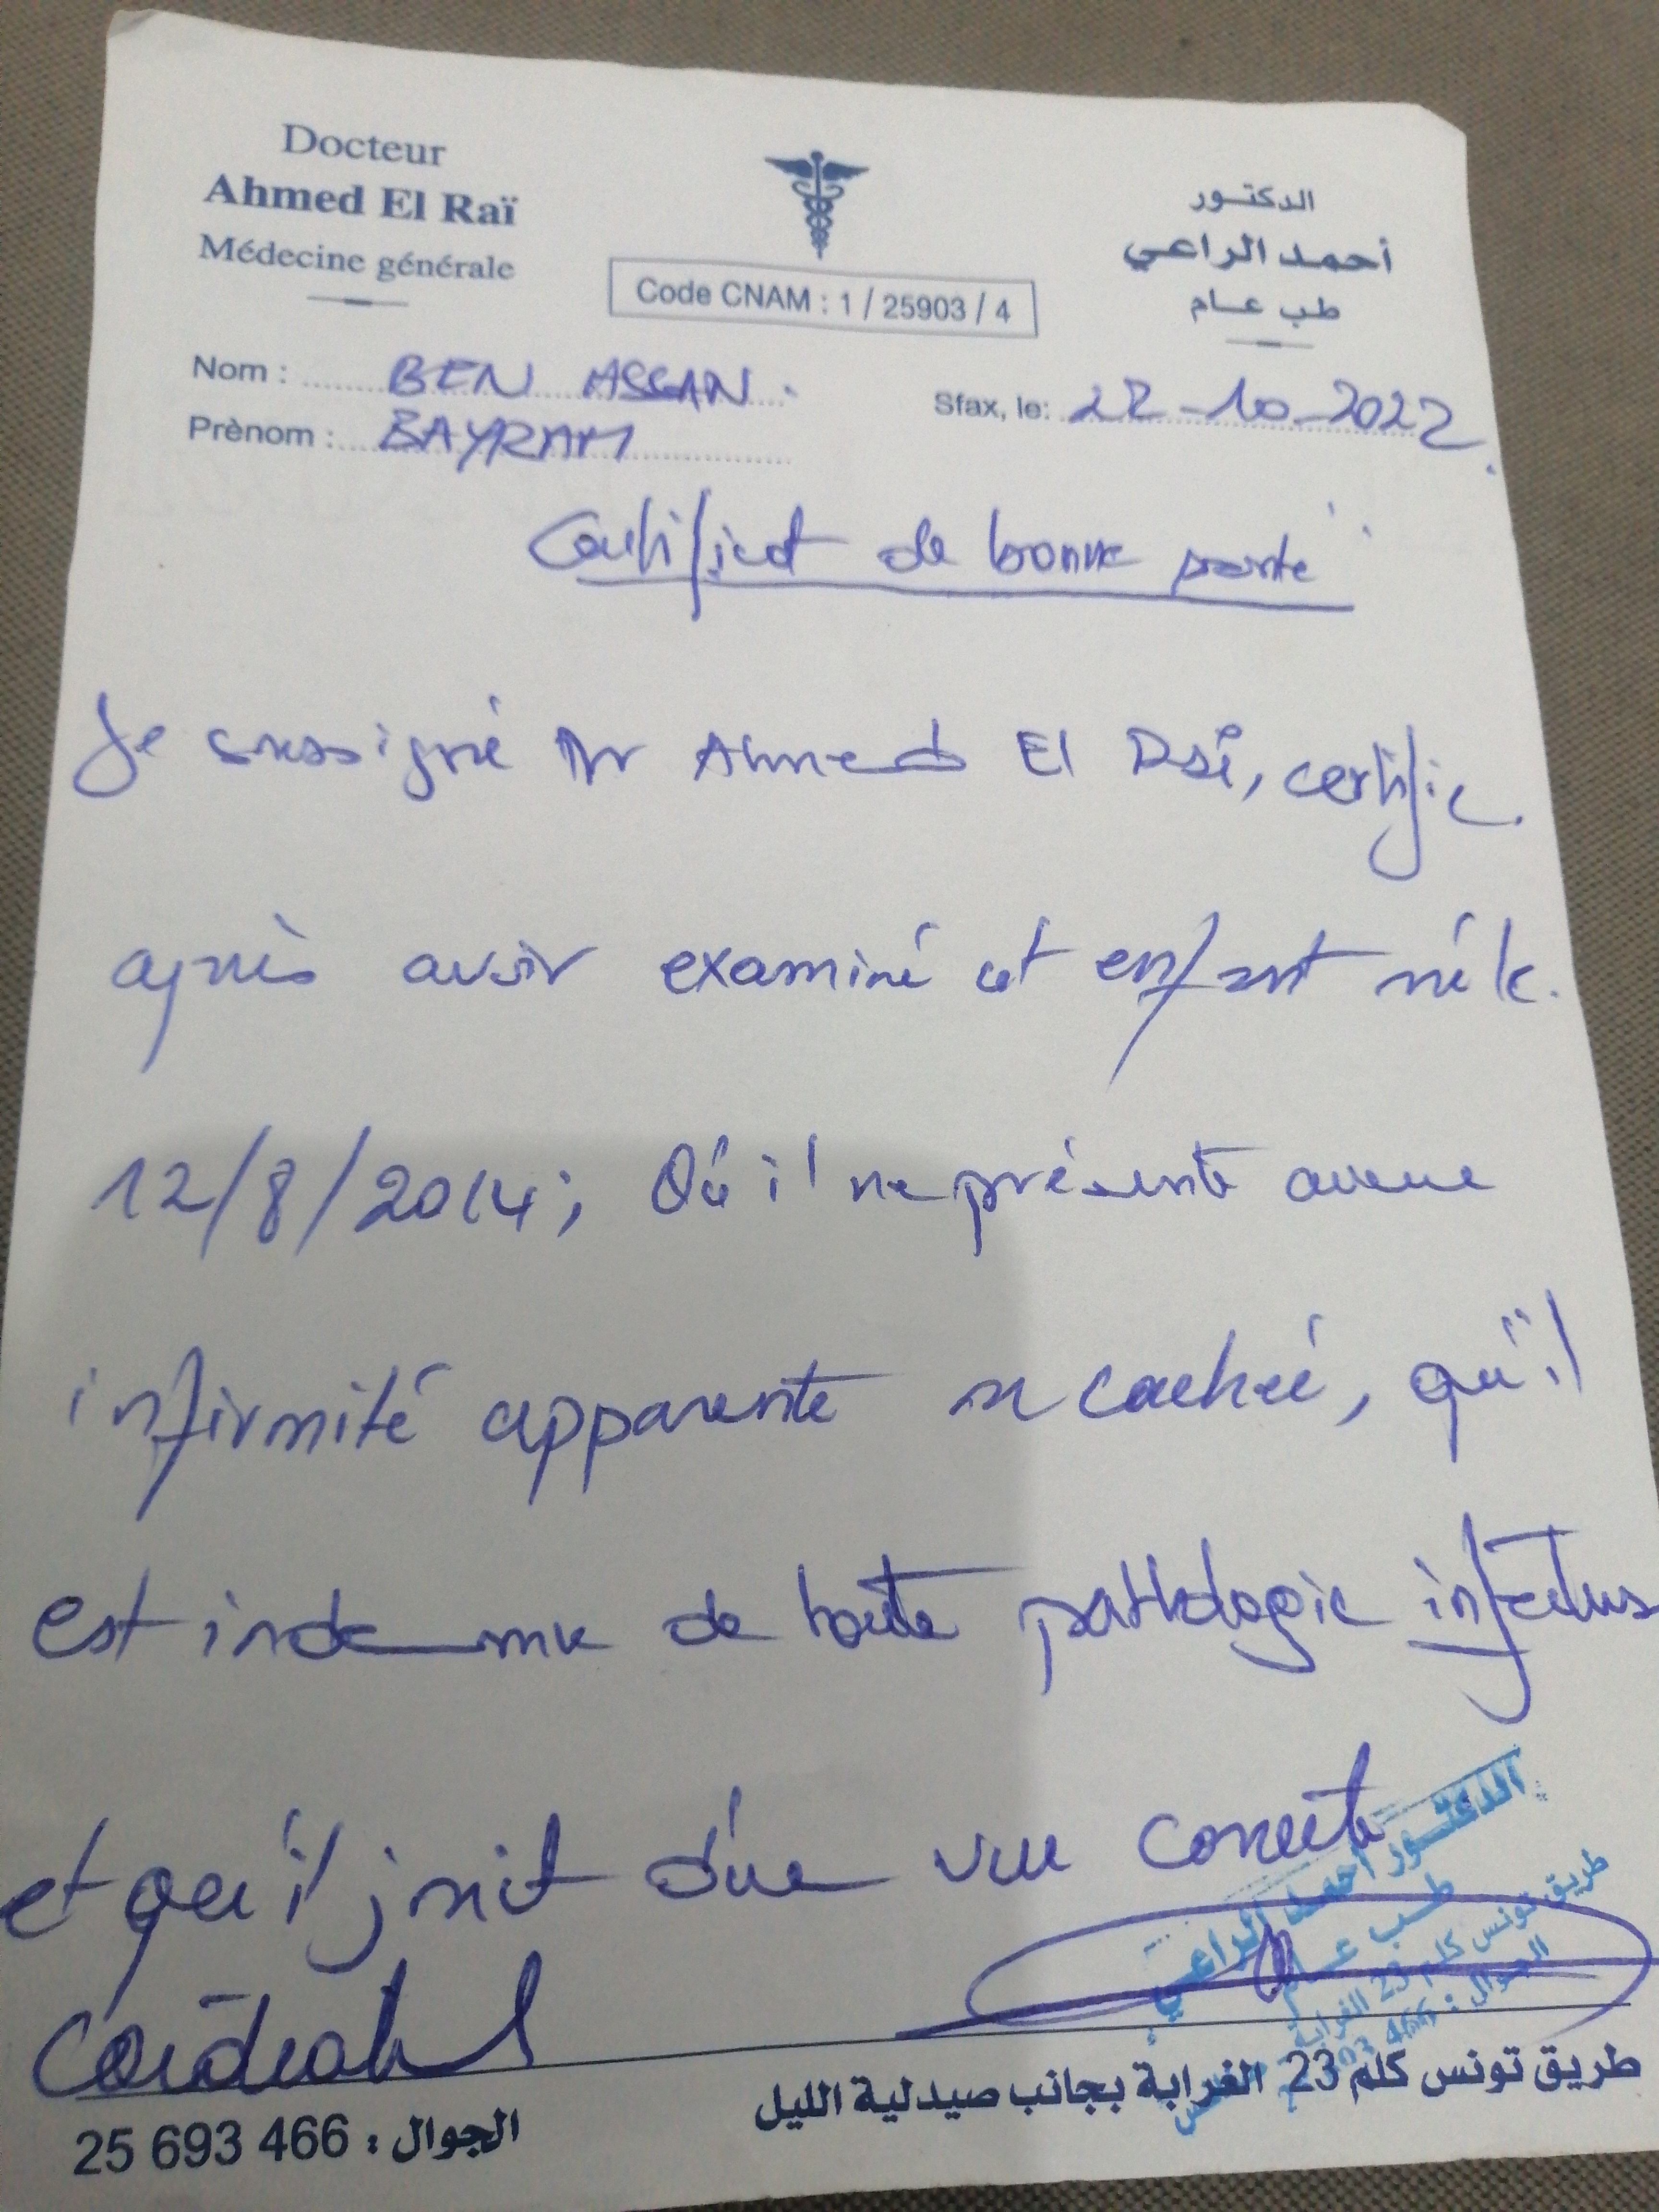 Docteur
Ahmed El Raï
Médecine générale
Code CNAM : 1 / 25903 / 4
الدكتور
أحمد الراعي
طب عام
Nom : BEN ASSAN
Prènom : BAYRAM
Sfax, le: 22-10-2022
Certificat de bonne santé
Je soussigné Dr Ahmed El Raï, certifie
après avoir examiné cet enfant né le
12/8/2014; Qu'il ne présente aucune
infirmité apparente ni cachée, qu'il
est indemne de toute pathologie infectieuse
et qu'il jouit d'une vue correcte
الدكتور أحمد الراعي
طب عام
طريق تونس كلم 23 الغرابة
طريق تونس كلم 23 الغرابة بجانب صيدلية الليل
الجوال : 466 693 25